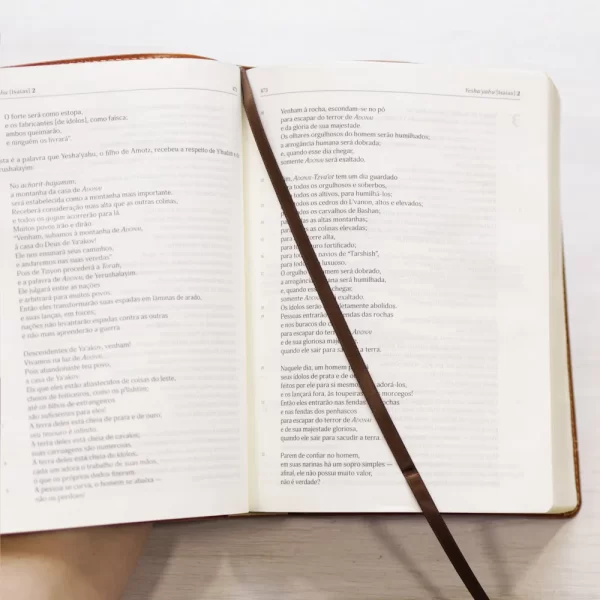 (Isaías) 2
O forte será como estopa,
e os fabricantes [de ídolos], como faísca;
ambos queimarão,
e ninguém os livrará".
esta é a palavra que Yesha'yahu, o filho de Amotz, recebeu a respeito de Y'hudah e
No acharit-hayamim,
a montanha da casa de ADONAI
será estabelecida como a montanha mais importante.
Receberá consideração mais alta que as outras colinas,
e todos os goyim acorrerão para lá.
Muitos povos irão e dirão:
"Venham, subamos à montanha de ADONAI,
à casa do Deus de Ya'akov!
Ele nos ensinará seus caminhos,
e andaremos nas suas veredas".
Pois de Tziyon procederá a Torah,
e a palavra de ADONAI, de Yerushalayim.
Ele julgará entre as nações
e arbitrará para muitos povos.
Então eles transformarão suas espadas em lâminas de arado,
e suas lanças, em foices;
nações não levantarão espadas contra as outras
e não mais aprenderão a guerra.
Descendentes de Ya'akov, venham!
Vivamos na luz de ADONAI.
Pois abandonaste teu povo,
a casa de Ya'akov.
cheios de feiticeiros, como os p'lishtim;
até os filhos de estrangeiros
são suficientes para eles!
A terra deles está cheia de prata e de ouro;
seu tesouro é infinito.
A terra deles está cheia de cavalos,
suas carruagens são numerosas.
A terra deles está cheia de ídolos,
cada um adora o trabalho de suas mãos,
o que os próprios dedos fizeram.
A pessoa se curva, o homem se abaixa —
não os perdoes!
Yesha'yahu (Isaías) 2
Venham à rocha, escondam-se no pó
para escapar do terror de ADONAI
e da glória de sua majestade.
Os olhares orgulhosos do homem serão humilhados;
a arrogância humana será dobrada;
e, quando esse dia chegar,
somente ADONAI será exaltado.
ADONAI-Tzva'ot tem um dia guardado
todos os orgulhosos e soberbos,
todos os altivos, para humilhá-los;
todos os cedros do L'vanon, altos e elevados;
todos os carvalhos de Bashan,
as altas montanhas;
colinas elevadas;
torre alta,
muro fortificado,
para navios de "Tarshish",
para luxuoso.
O orgulho do homem será dobrado,
a arrogância humana será humilhada,
e, quando esse dia chegar,
somente ADONAI exaltado.
Os ídolos serão completamente abolidos.
Pessoas entrarão das rochas
e nos buracos do
para escapar do terror ADONAI
e de sua gloriosa
quando ele sair para a terra.
Naquele dia, um homem
seus ídolos de prata e de
feitos por ele para si adorá-los,
e os lançará fora, às toupeiras morcegos!
Então eles entrarão nas fendas rochas
e nas fendas dos penhascos
para escapar do terror de ADONAI
e de sua majestade gloriosa,
quando ele sair para sacudir a terra.
Parem de confiar no homem,
em suas narinas há um sopro simples —
afinal, ele não possui muito valor,
não é verdade?